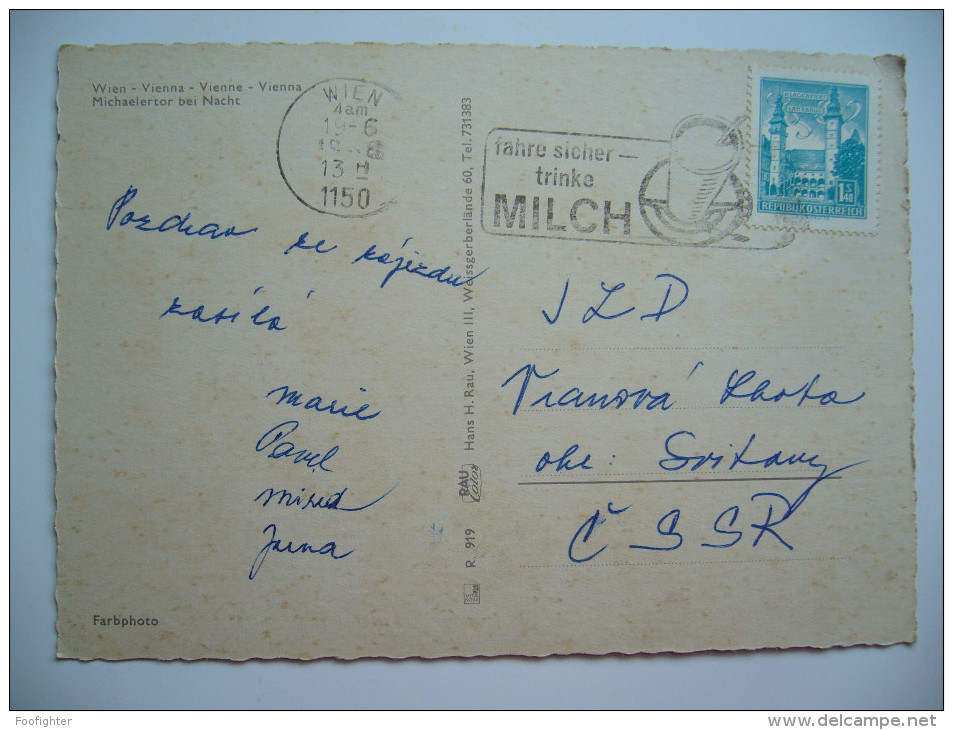 Wien - Vienna - Vienne - Vienna
Michaelertor bei Nacht
WIEN
4am
19-6
13
1150
fahre sicher —
trinke
MILCH
KLAGENFURT
LANDHAUS
1S40
REPUBLIK ÖSTERREICH
Pozdrav ze zájezdu
zasílá
Marie
Pavel
Jarna
JZD
Vranová Lhota
okr: Svitavy
ČSSR
R. 919 RAU Color Hans H. Rau, Wien III, Weissgerberlände 60, Tel. 731383
Farbphoto
Foofighter
www.delcampe.net